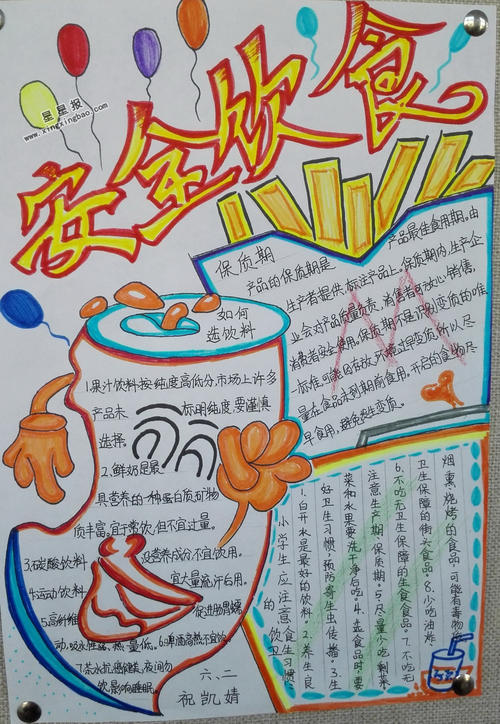 安全饮食
星星报
www.xingxingbao.com
保质期
产品的保质期是
产品最佳食用期。由
生产者提供,标注产品上。保质期内,生产企
业会对产品质量负责,消费者可放心销售,
消费者安全使用。保质期不是识别变质的唯一
标准,可能因存放环境
变质。所以尽
量在食品未到期前食用。开启的食物尽
早食用,避免发生变质。
如何
选饮料
1.果汁饮料按纯度高低分,市场上许多
产品未
标明纯度,要谨慎
选择。
2.鲜奶是最
具营养的一种蛋白质矿物
质丰富。宜于常饮,但不宜过量。
3.碳酸饮料
没营养成分不宜饮用。
4.运动饮料
宜大量流汗后用。
5.高纤维
促进肠胃蠕
动,吸水性强,热量低。6.啤酒
7.茶水抗癌健美,夜间勿
饮影响睡眠。
六、二
祝凯婧
小学生应注意的饮食卫生习惯:
1.白开水是最好的饮料 2.养生良
好卫生习惯,预防寄生虫传播。3.生
菜和水果要洗干净后吃。4.选食品时要
注意生产期,保质期。5.尽量不吃剩菜
6.不吃无卫生保障的生食食品。7.不吃无
卫生保障的街头食品。8.少吃油炸
烟熏烧烤的食品,可能有毒物